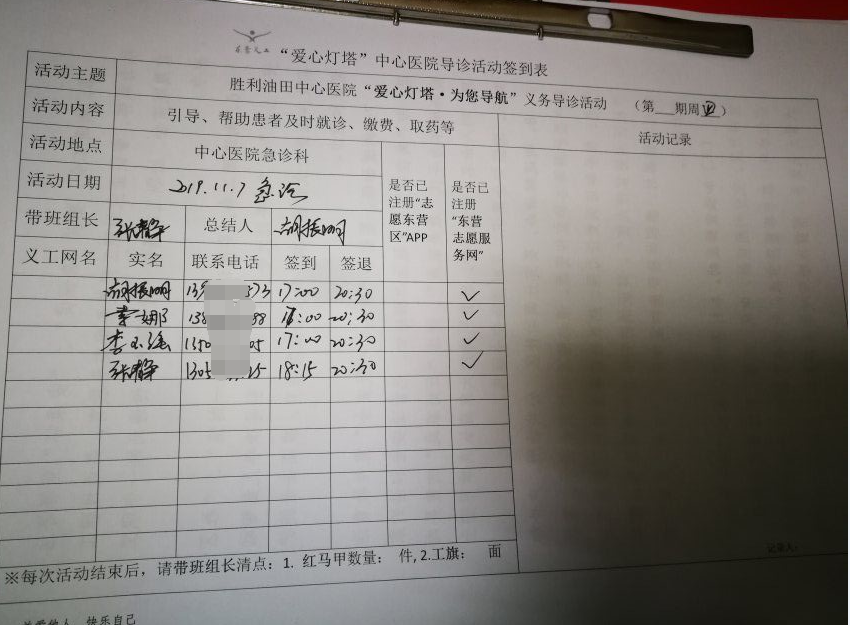 东营义工
“爱心灯塔”中心医院导诊活动签到表
活动主题 胜利油田中心医院“爱心灯塔·为您导航”义务导诊活动 (第 期周四)
活动内容 引导、帮助患者及时就诊、缴费、取药等 活动记录
活动地点 中心医院急诊科 是否已注册“志愿东营区”APP 是否已注册“东营志愿服务网”
活动日期 2019.11.7 急诊
带班组长 张静 总结人 胡振明
义工网名 实名 联系电话 签到 签退
胡振明 17:00 20:30 ✓
娜 17:00 20:30 ✓
李玉 1350 05 17:00 20:30 ✓
张静 1305 18:15 20:30 ✓
※每次活动结束后，请带班组长清点：1. 红马甲数量： 件, 2.工旗： 面
记录人：
关爱他人 快乐自己